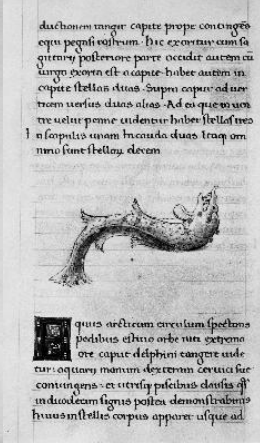 ductionem tangit capite prope contingēs
equi pegasi rostrum. hic exoritur cum sa
gittarij posteriore parte occidit autem cū
uirgo exorta est a capite. habet autem in
capite stellas duas. Supra caput ad uer
ticem uersus duas alias. Ad ea que in uen
tre uelut penne uidentur haber stellas tres
In scapulis unam In cauda duas Itaq; om
nino sunt stellarum decem
A quis arcticum circulum spectans
pedibus estiuo orbe niti extrema
ore caput delphini tangere uide
tur: aquarij manum dexteram ceruici sue
contingens: et utrisq; piscibus clausis
in duodecim signis postea demonstrabimus
huius in stellis corpus apparet usque ad